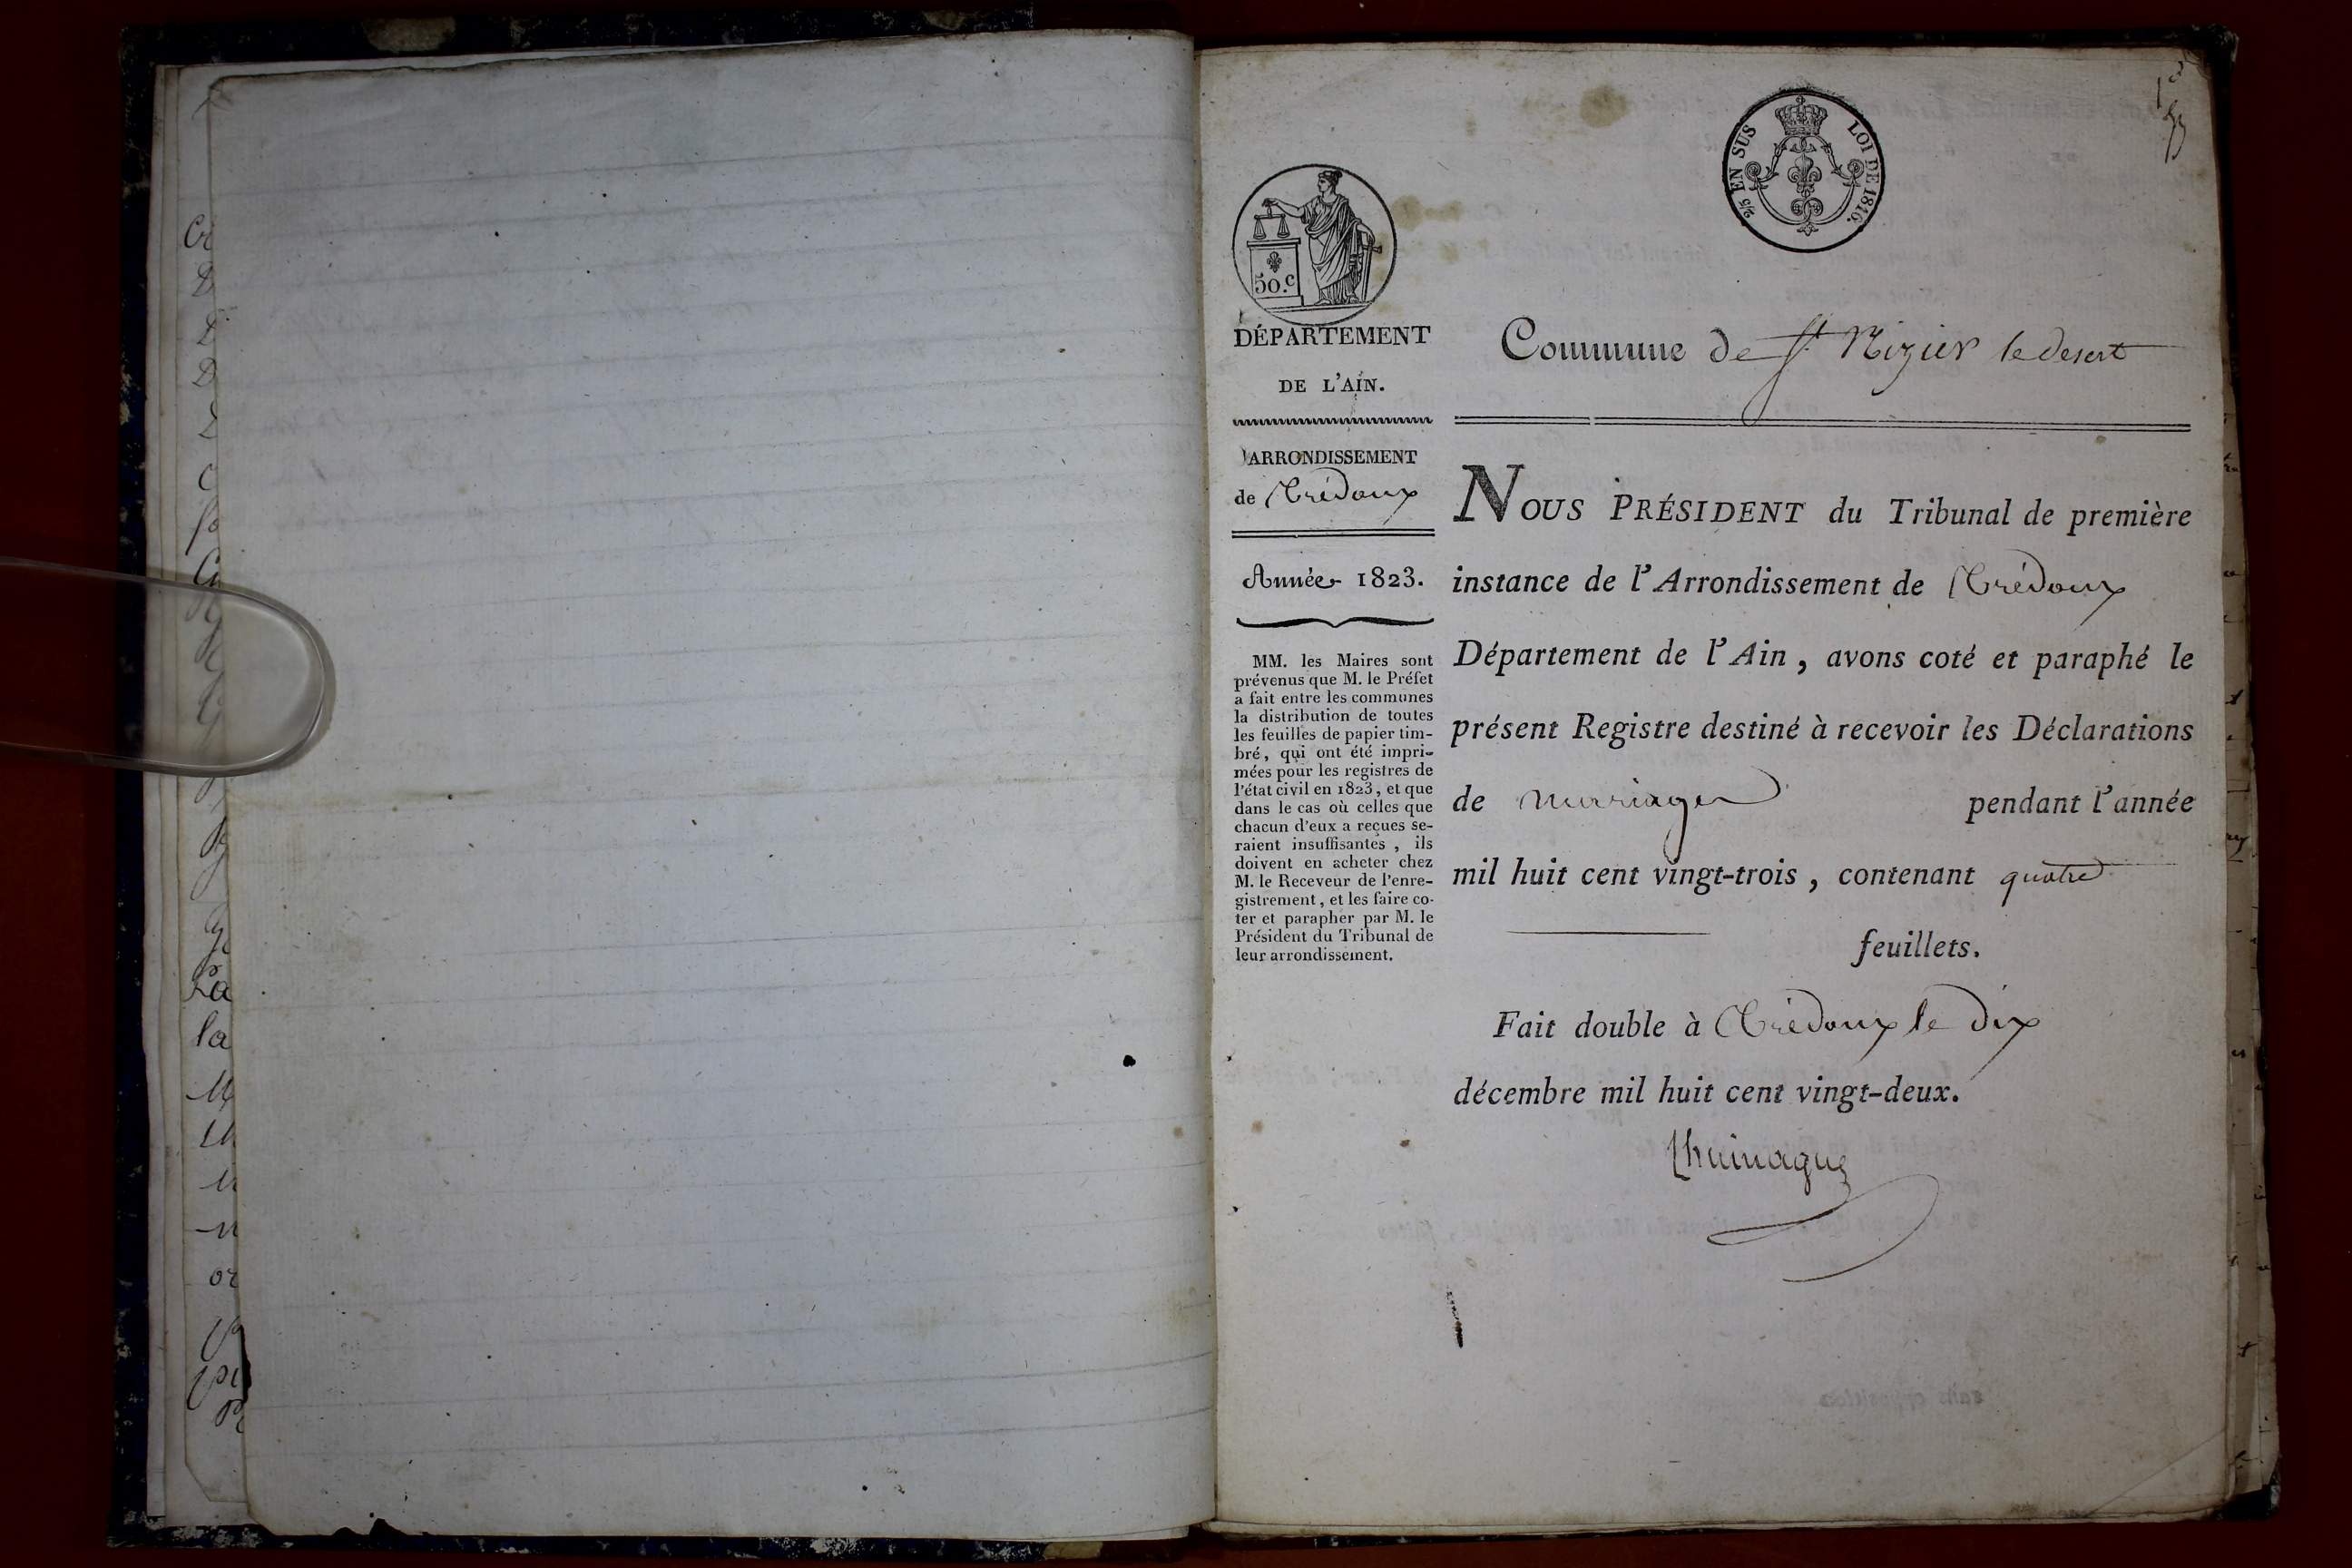 2/5 EN SUS LOI DE 1816.
50.c
DÉPARTEMENT
DE L'AIN.
ARRONDISSEMENT
de Trévoux
Année 1823.
MM. les Maires sont
prévenus que M. le Préfet
a fait entre les communes
la distribution de toutes
les feuilles de papier tim-
bré, qui ont été impri-
mées pour les registres de
l'état civil en 1823, et que
dans le cas où celles que
chacun d'eux a reçues se-
raient insuffisantes, ils
doivent en acheter chez
M. le Receveur de l'enre-
gistrement, et les faire co-
ter et parapher par M. le
Président du Tribunal de
leur arrondissement.
Commune de St Nizier le desert
NOUS PRÉSIDENT du Tribunal de première
instance de l'Arrondissement de Trévoux
Département de l'Ain, avons coté et paraphé le
présent Registre destiné à recevoir les Déclarations
de mariages pendant l'année
mil huit cent vingt-trois, contenant quatre
feuillets.
Fait double à Trévoux le dix
décembre mil huit cent vingt-deux.